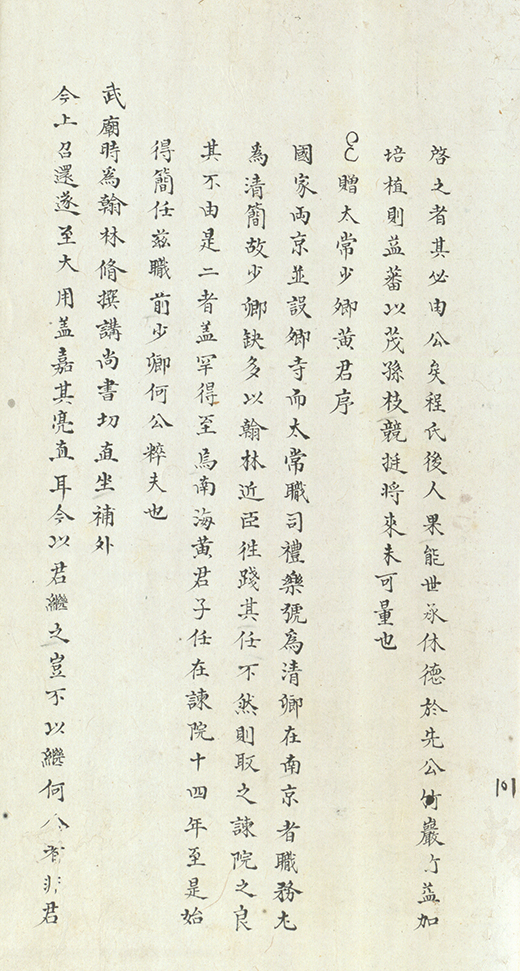 啓之者其必由公矣程氏後人果能世承休德於先公竹巖益加
培植則益蕃以茂孫枝競挺將來未可量也
贈太常少卿黃君序
國家兩京並設卿寺而太常職司禮樂號為清卿在南京者職務尤
為清簡故少卿缺多以翰林近臣徃踐其任不然則取之諫院之良
其不由是二者蓋罕得至焉南海黃君子任在諫院十四年至是始
得簡任兹職前少卿何公粹夫也
武廟時為翰林脩撰講尚書切直坐補外
今上召還遂至大用蓋嘉其亮直耳今以君繼之豈不以繼何公者非君